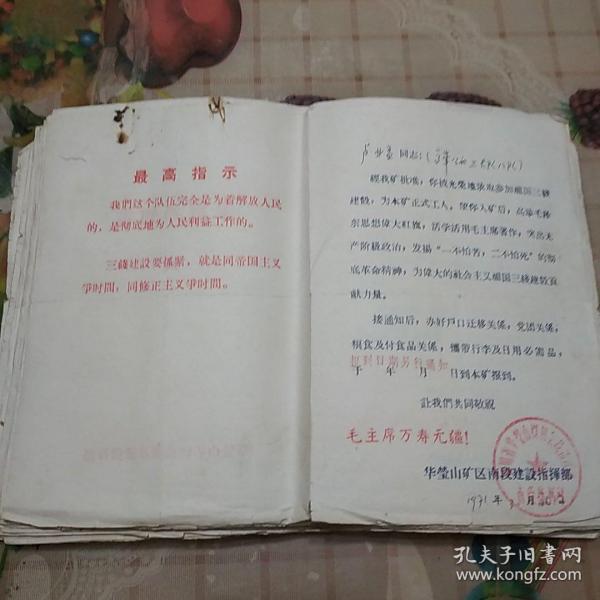 最高指示
我們这个队伍完全是为着解放人民
的，是彻底地为人民利益工作的。
三綫建設要抓緊，就是同帝国主义
爭时間，同修正主义爭时間。
同志：
經我矿批准，你被光榮地录取参加祖国三綫
建設，为本矿正式工人，望你入矿后，高举毛泽
东思想偉大紅旗，活学活用毛主席著作，突出无
产阶級政治，发揚“一不怕苦，二不怕死”的彻
底革命精神，为偉大的社会主义祖国三綫建設貢
献力量。
接通知后，办好戶口迁移关係，党团关係，
粮食及付食品关係，攜带行李及日用必需品，
报到日期另行通知
于 年 月 日到本矿报到。
讓我們共同敬祝
毛主席万寿元疆！
华瑩山矿区南段建設指揮部
1971年 月 日
孔夫子旧书网
www.kongfz.com